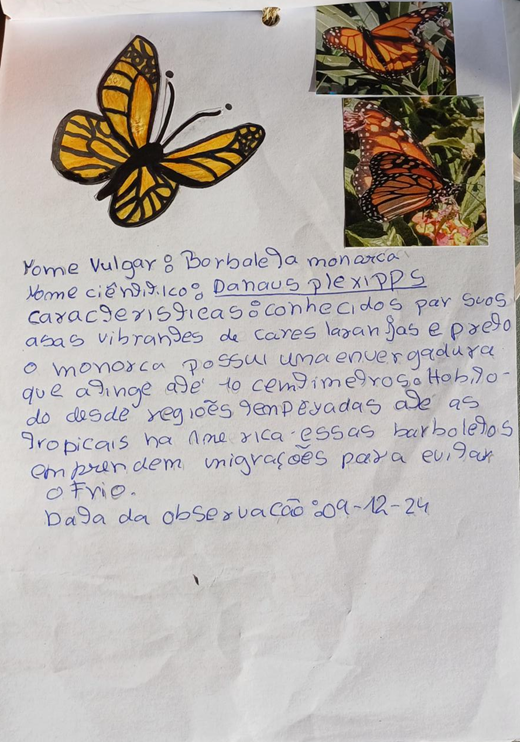 Nome Vulgar: Borboleta monarca
Nome ciêntitico: Danaus plexipps
características: conhecidos por suas
asas vibrantes de cores laranjas e preto
o monarca possui uma envergadura
que atinge até 10 centimetros. Habita-
do desde regiões temperadas até as
tropicais na América. essas borboletas
emprendem migrações para evitar
o Frio.
Data da observacão: 09-12-24